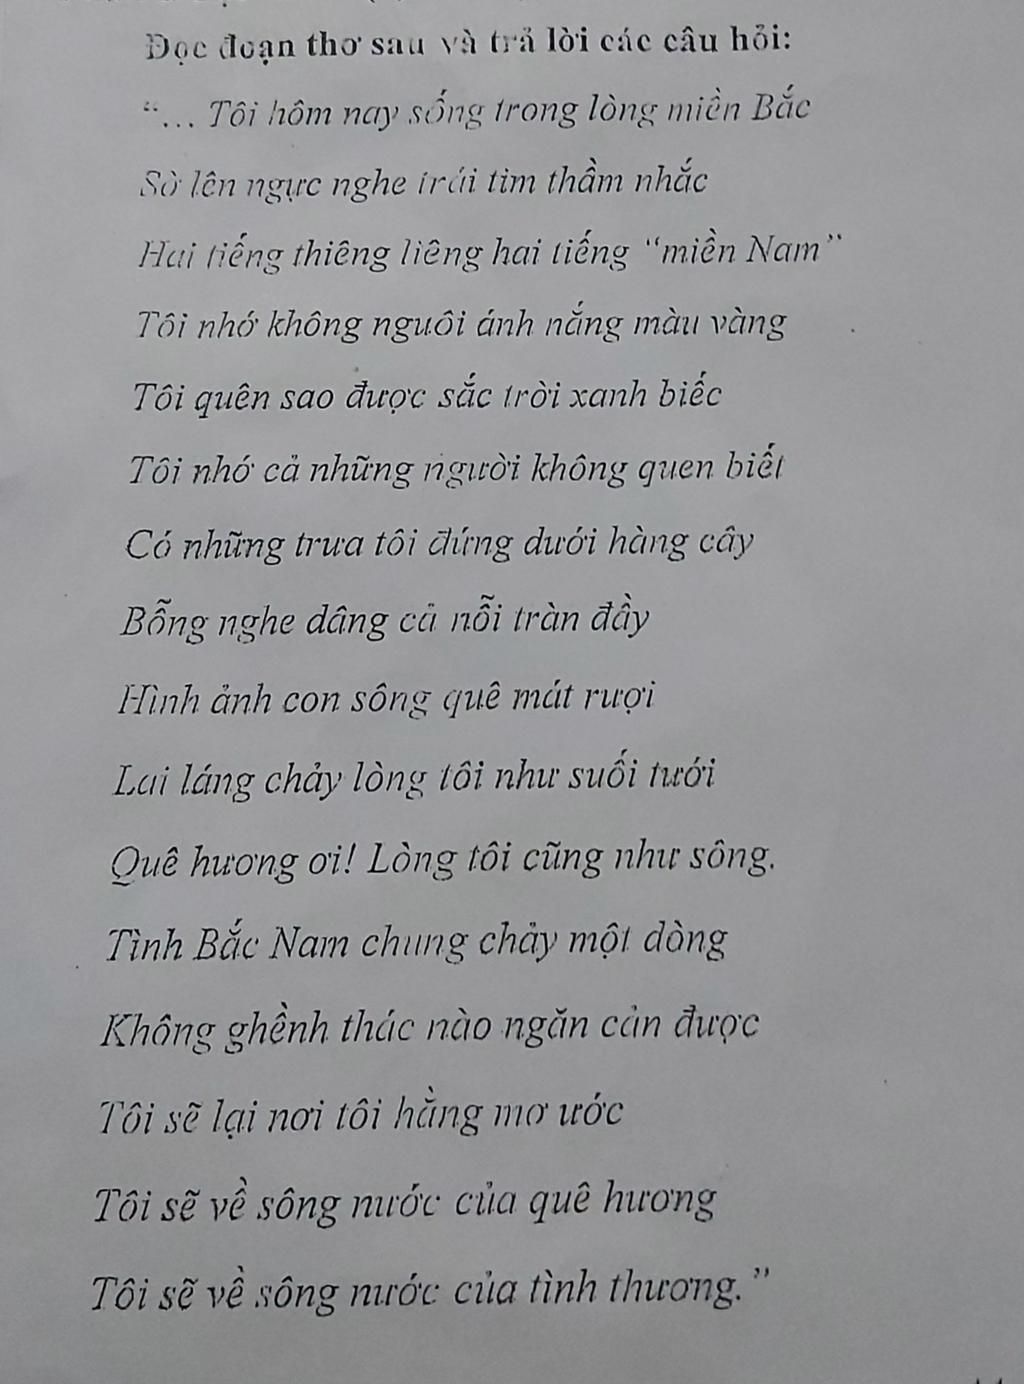 Đọc đoạn thơ sau và trả lời các câu hỏi:
“… Tôi hôm nay sống trong lòng miền Bắc
Sờ lên ngực nghe trái tim thầm nhắc
Hai tiếng thiêng liêng hai tiếng “miền Nam”
Tôi nhớ không nguôi ánh nắng màu vàng
Tôi quên sao được sắc trời xanh biếc
Tôi nhớ cả những người không quen biết
Có những trưa tôi đứng dưới hàng cây
Bỗng nghe dâng cả nỗi tràn đầy
Hình ảnh con sông quê mát rượi
Lai láng chảy lòng tôi như suối tưới
Quê hương ơi! Lòng tôi cũng như sông.
Tình Bắc Nam chung chảy một dòng
Không ghềnh thác nào ngăn cản được
Tôi sẽ lại nơi tôi hằng mơ ước
Tôi sẽ về sông nước của quê hương
Tôi sẽ về sông nước của tình thương.”